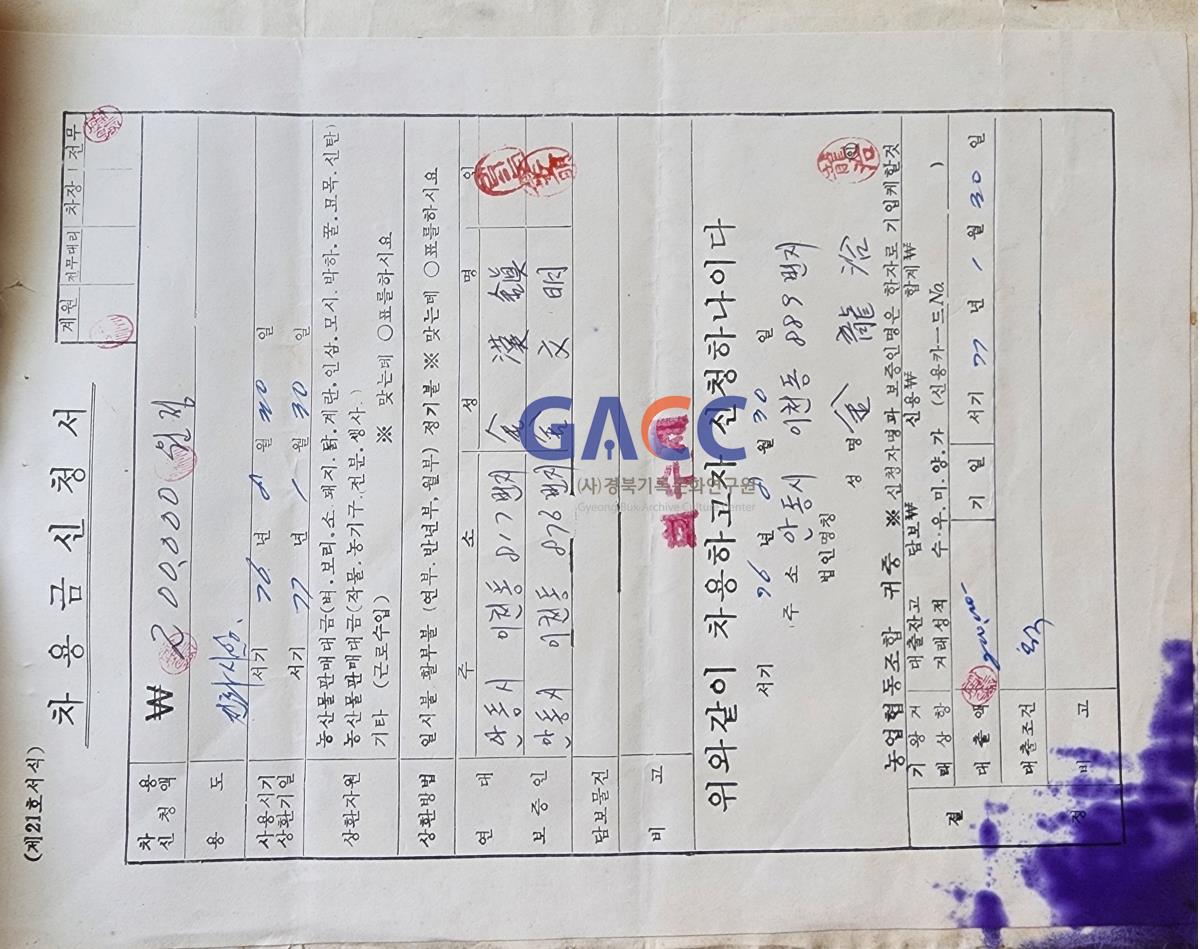 (제21호서식)
차용금신청서
계원 전무대리 차장 전무
차용신청액 ₩ 200,000 원정
용도
사용시기 서기 76년 8월 30일
상환기일 서기 77년 1월 30일
상환자원 농산물판매대금(벼.보리.소.돼지.닭.계란.인삼.모시.박하.꿀.묘목.신탄)
농산물판매대금(작물.농기구.전분.생사.)
기타 (근로수입) ※ 맞는데 ○표를하시요
상환방법 일시불 할부불 (연부.반년부,월부) 정기불 ※ 맞는데 ○표를하시요
연대보증인 주소 성명 인
안동시 이천동 817번지 金漢鎭
안동시 이천동 876번지 金文
담보물건
비고
위와같이 차용하고자 신청하나이다
서기 76년 8월 30일
주소 안동시 이천동 889번지
법인명칭
성명 金龍治
농업협동조합 귀중 ※ 신청자명과 보증인명은 한자로 기입케할것
기왕거래상항 대출잔고 담보₩ 신용₩ 합계₩
거래성적 수.우.미.양.가 (신용카ー드No. )
결정 대출액 200,000 기일 서기 77년 1월 30일
대출조건
비고
GACC
(사)경북기록문화연구원
Gyeong Buk Archive Culture Center